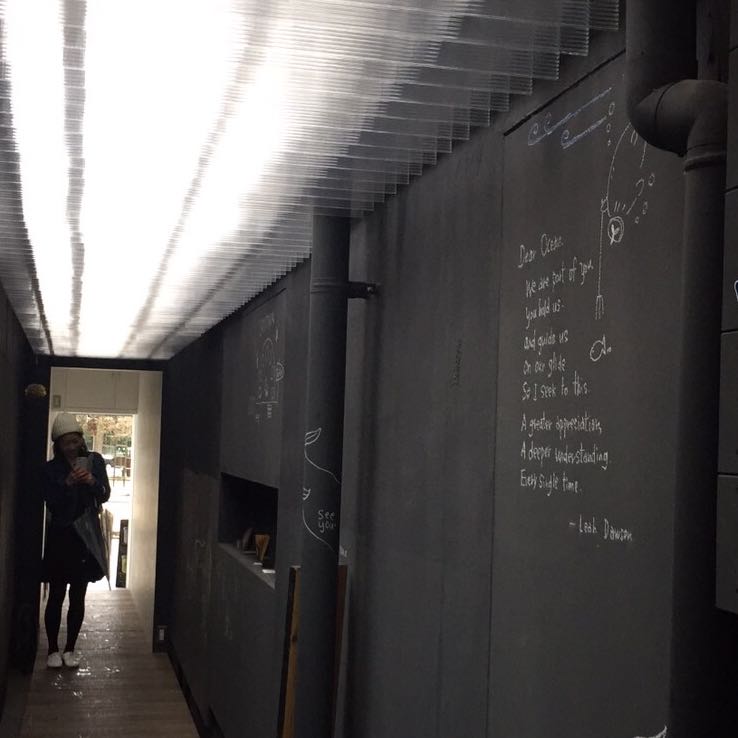 Dear Ocean.
We are part of you
you hold us.
and guide us
on our glide
So I seek to this.
A greater appreciation,
A deeper understanding
Every single time.
- Leah Dawson
See
you